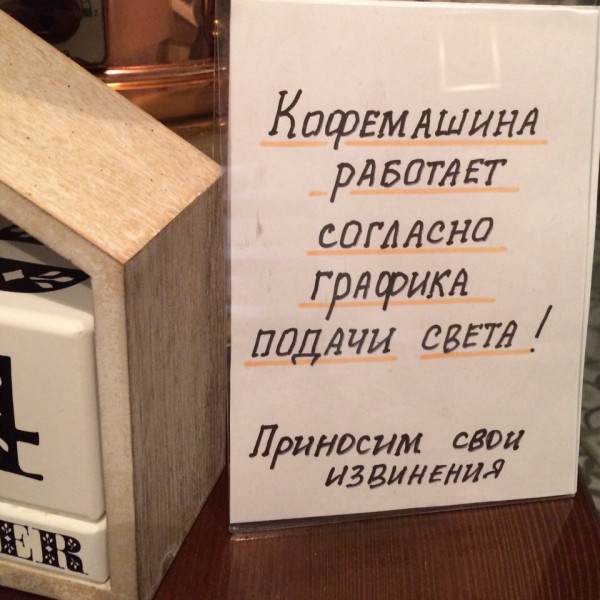 Кофемашина
работает
согласно
графика
подачи света!
Приносим свои
извинения
4
ER